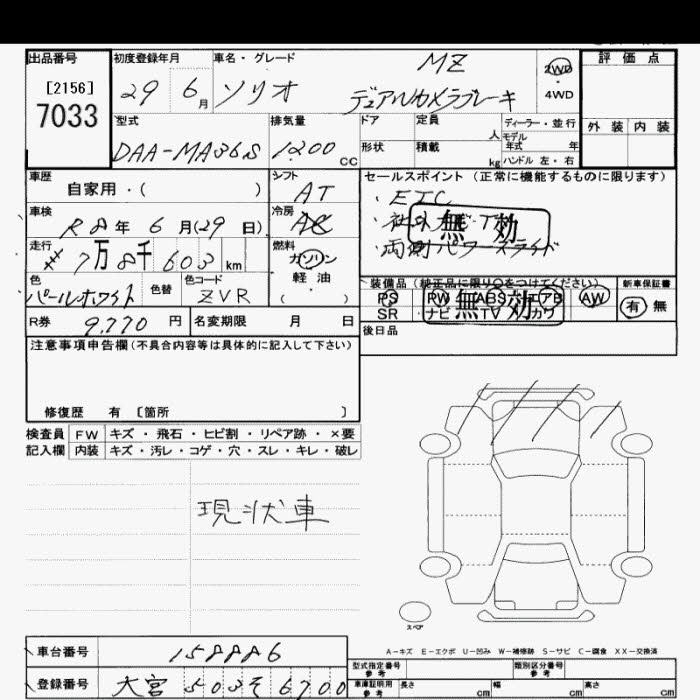 出品番号 初度登録年月 車名・グレード MZ 2WD 評価点
[2156] 29 6月 ソリオ デュアルカメラブレーキ ・ 4WD
7033
型式 排気量 ドア 定員 人 ディーラー・並行 外装 内装
DAA-MA36S 1200 CC 形状 積載 kg モデル年式 年
ハンドル 左・右
車歴 シフト セールスポイント (正常に機能するものに限ります)
自家用・( ) AT ・ETC
車検 冷房 ・社外ナビ・TV 無効
R8年 6月(29日) AC ・両側パワースライド
走行 燃料
7万8千603km ガソリン
軽・油
( )
色 色替 色コード 装備品 (純正品に限り○をつけてください) 新車保証書
パールホワイト ZVR PS PW ABS エアB AW 有 無
SR ナビ TV カワ 無効
R券 9,770円 名変期限 月 日 後日品
注意事項申告欄(不具合内容等は具体的に記入して下さい)
修復歴 有 [箇所 ]
検査員 FW キズ・飛石・ヒビ割・リペア跡・×要
記入欄 内装 キズ・汚レ・コゲ・穴・スレ・キレ・破レ
現状車
スペア
A-キズ E-エクボ U-凹み W-補修跡 S-サビ C-腐食 XX-交換済
車台番号 型式指定番号 参考 類別区分番号 参考
登録番号 大宮 503 そ 6700 車庫証明用 参考 長さ cm 幅 cm 高さ cm